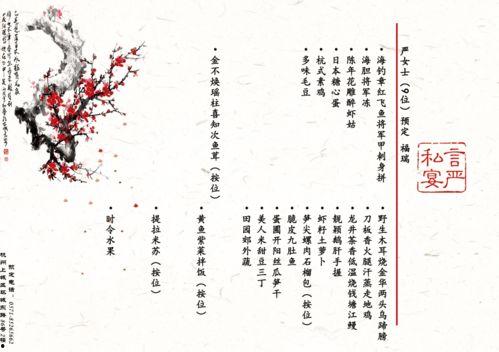 严女士（9位）预定 福瑞
言严私宴
•海钓章红飞鱼将军甲刺身拼
•海胆将军冻
•陈年花雕醉虾姑
•日本糖心蛋
•杭式素鸡
•多味毛豆
•金不焕瑶柱喜知次鱼茸（按位）
•野生木耳烧金华两头乌蹄膀
•刀板香火腿汗蒸走地鸡
•龙井茶香低温烧钱塘江鳗
•靓颖鹅肝手握
•虾籽土萝卜
•笋尖螺肉石榴包（按位）
•脆皮九肚鱼
•蛋圃开阳丝瓜笋干
•美人米甜豆三丁
•田园郊外蔬
•黄鱼紫菜拌饭（按位）
•提拉米苏（按位）
•时令水果